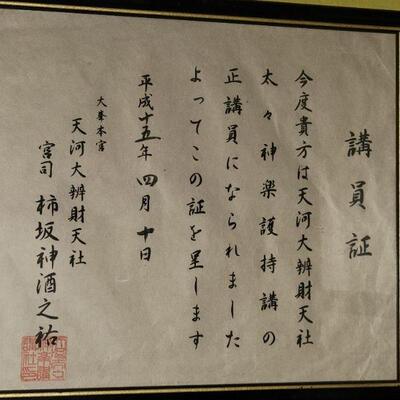 講員証
今度貴方は天河大辨財天社
太々神楽護持講の
正講員になられました
よってこの証を呈します
平成十五年四月十日
大峯本宮
天河大辨財天社
宮司 柿坂神酒之祐